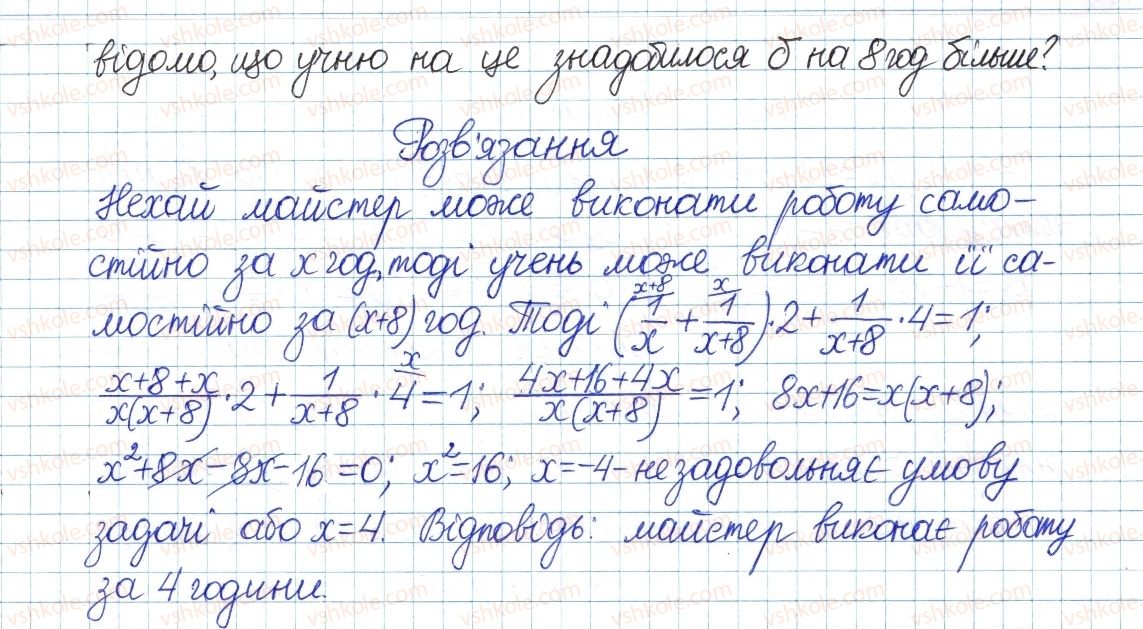 відомо, що учню на це знадобилося б на 8 год більше?
Розв'язання
Нехай майстер може виконати роботу само-
стійно за x год, тоді учень може виконати її са-
мостійно за (x+8) год. Тоді (x+8/ 1/x + x/ 1/(x+8))·2 + 1/(x+8)·4=1;
(x+8+x)/(x(x+8))·2 + 1/(x+8)· x/ 4=1; (4x+16+4x)/(x(x+8))=1; 8x+16=x(x+8);
x²+8x-8x-16=0; x²=16; x=-4- не задовольняє умову
задачі або x=4. Відповідь: майстер виконає роботу
за 4 години.
vshkole.com